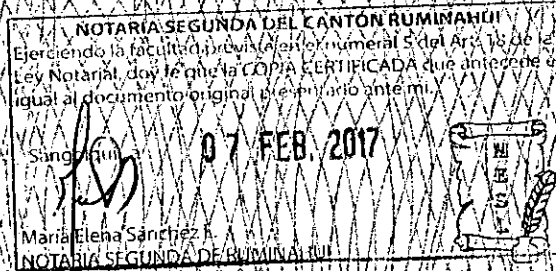 NOTARÍA SEGUNDA DEL CANTÓN RUMIÑAHUI
Ejerciendo la facultad prevista en el numeral 5 del Art. 18 de la
Ley Notarial, doy fe que la COPIA CERTIFICADA que antecede e
igual al documento original presentado ante mi.
Sangolquí, a
07 FEB. 2017
María Elena Sánchez
NOTARIA SEGUNDA DE RUMIÑAHUI